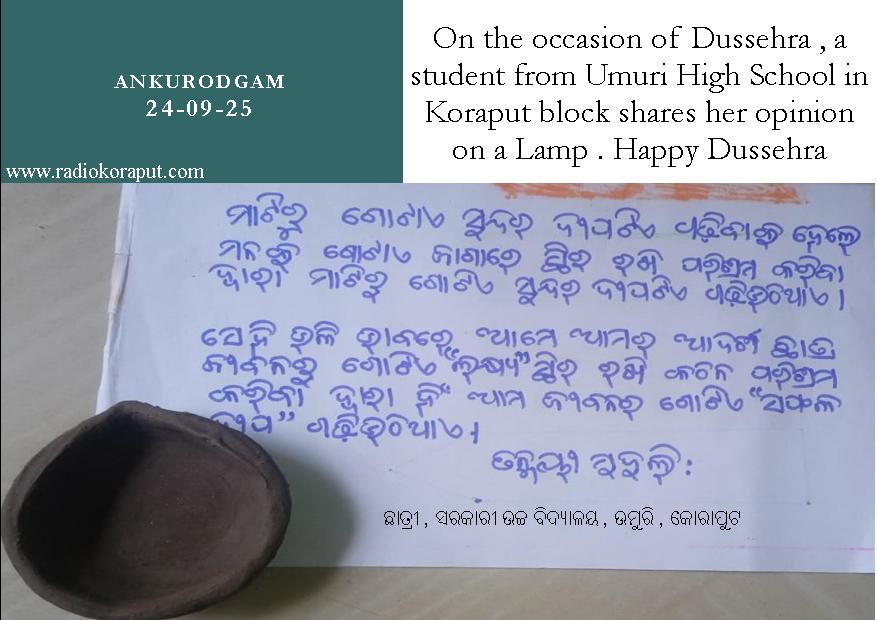 ANKURODGAM
24-09-25
www.radiokoraput.com
On the occasion of Dussehra , a
student from Umuri High School in
Koraput block shares her opinion
on a Lamp . Happy Dussehra
ମାଟିରୁ ଗୋଟାଏ ସୁନ୍ଦର ଦୀପଟିଏ ଗଢ଼ିବାକୁ ହେଲେ
ମନକୁ ଗୋଟାଏ ଜାଗାରେ ସ୍ଥିର ରଖି ପରିଶ୍ରମ କରିବା
ଦ୍ୱାରା ମାଟିରୁ ଗୋଟିଏ ସୁନ୍ଦର ଦୀପଟିଏ ଗଢ଼ିହୋଇଥାଏ ।
ସେହି ଭଳି ଭାବରେ ଆମେ ଆମର ଆଦର୍ଶ ଛାତ୍ର
ଜୀବନରୁ ଗୋଟିଏ "ଲକ୍ଷ୍ୟ" ସ୍ଥିର ରଖି କଠିନ ପରିଶ୍ରମ
କରିବା ଦ୍ୱାରା ହିଁ ଆମ ଜୀବନର ଗୋଟିଏ "ସଫଳ
ଦୀପ" ଗଢ଼ିହୋଇଥାଏ ।
ଛାତ୍ରୀ , ସରକାରୀ ଉଚ୍ଚ ବିଦ୍ୟାଳୟ , ଉମୁରି , କୋରାପୁଟ